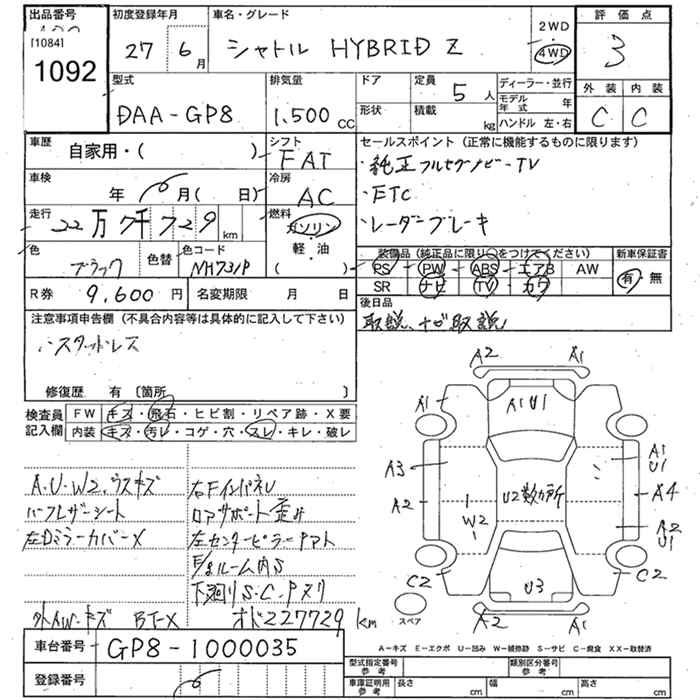 出品番号 初度登録年月 車名・グレード 2WD 評価点
[1084] 1092 27年 6月 シャトル HYBRID Z 4WD 3
型式 排気量 ドア 定員 5人 ディーラー・並行 外装 内装
DAA-GP8 1,500 CC 形状 積載 kg モデル年式 年 ハンドル 左・右 C C
車歴 自家用・( ) シフト FAT セールスポイント (正常に機能するものに限ります)
・純正フルセグナビ-TV
車検 年 月( 日) 冷房 AC
・ETC
走行 22万7千729km 燃料 ガソリン・軽・油 ( )
・レーダーブレーキ
色 ブラック 色替 色コード NH731P
装備品 (純正品に限り○をつけてください) 新車保証書
PS - PW - ABS - エアB AW 有・無
SR ナビ TV カワ
R券 9,600円 名変期限 月 日
後日品
取説、ナビ取説
注意事項申告欄 (不具合内容等は具体的に記入して下さい)
スタッドレス
修復歴 有〔箇所 〕
検査員記入欄 FW キズ・飛石・ヒビ割・リペア跡・X要
内装 キズ・汚レ・コゲ・穴・スレ・キレ・破レ
A.U.W2.ウスキズ 右FインパネU
ハーフレザーシート ロアサポート歪み
左Dミラーカバー X 左センターピラー
ルーム内S
下廻りS.C.Pヌリ
外AWキズ BT-X オド227729km
A2 A1
A1 A1U1
A3 A1 U1
A2 U2数カ所 A4
W2 A2 U1
C2 C2
U3
スペア A2 A1
車台番号 GP8-1000035
A-キズ E-エクボ U-凹み W-補修跡 S-サビ C-腐食 XX-取替済
型式指定番号 参考 類別区分番号 参考
登録番号 車庫証明用 参考 長さ cm 幅 cm 高さ cm